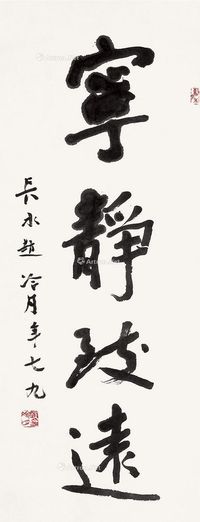 寧靜致遠
長水題 冷月年七九